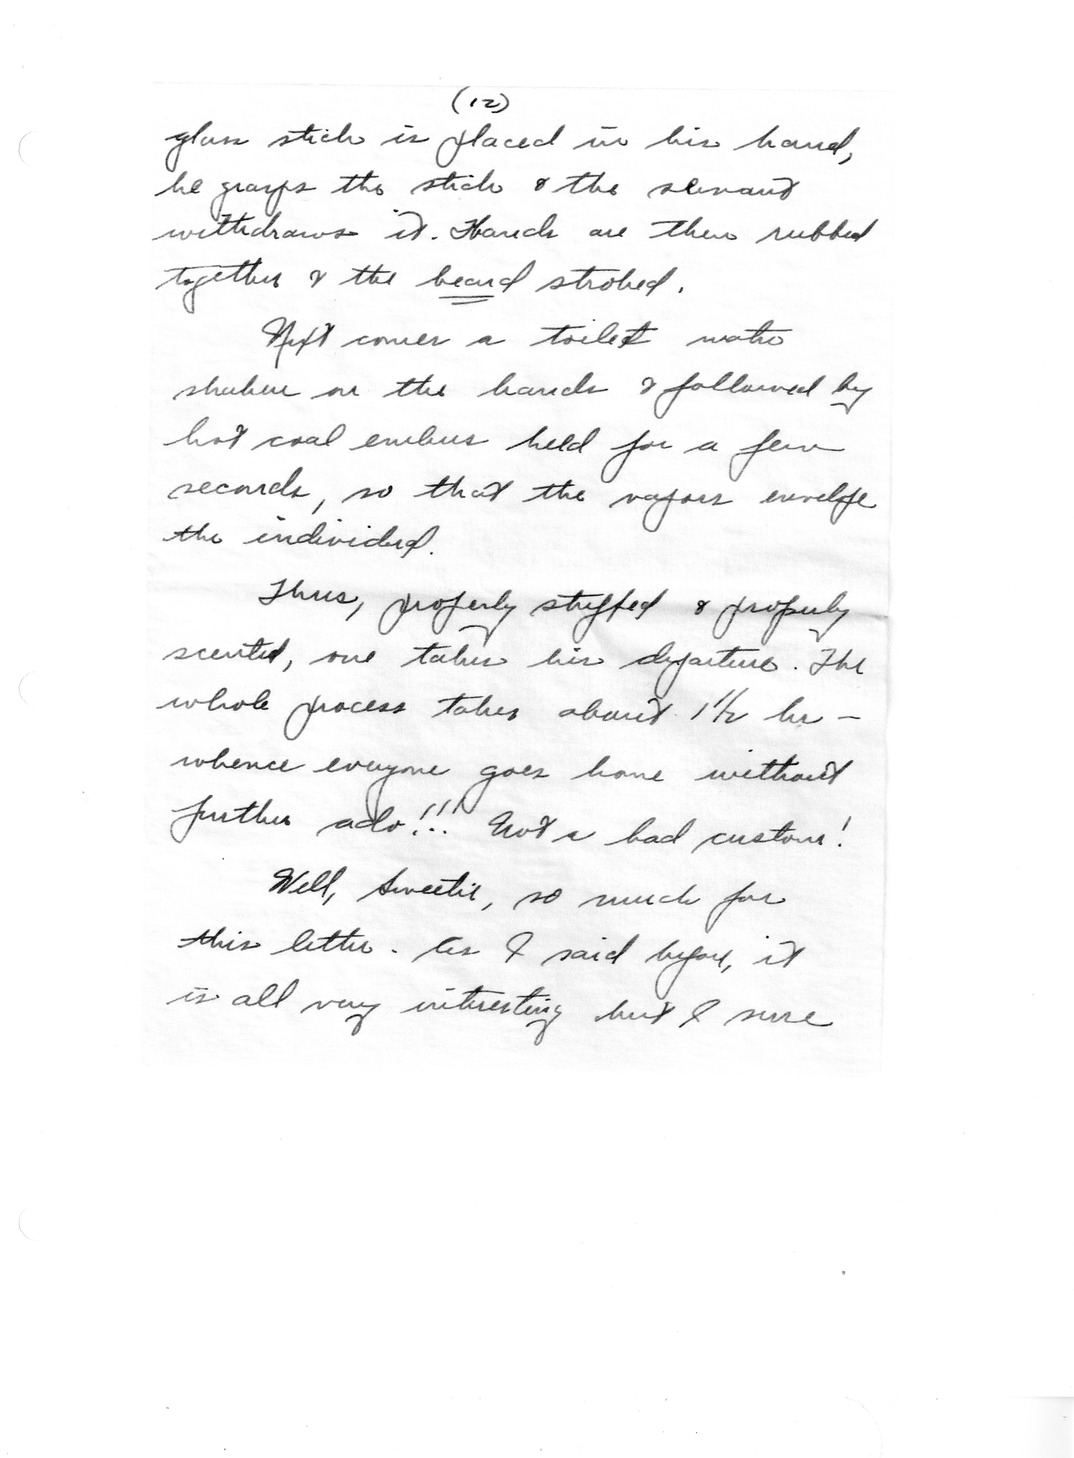 (12)
glass stick is placed in his hand,
he grasps the stick & the servant
withdraws it. Hands are then rubbed
together & the beard stroked.
Next comes a toilet water
shaken on the hands & followed by
hot coal embers held for a few
seconds, so that the vapors envelope
the individual.
Thus, properly stuffed & properly
scented, one takes his departure. The
whole process takes about 1 1/2 hr –
whence everyone goes home without
further ado!!! Not a bad custom!
Well, Sweetie, so much for
this letter. As I said before, it
is all very interesting but I sure